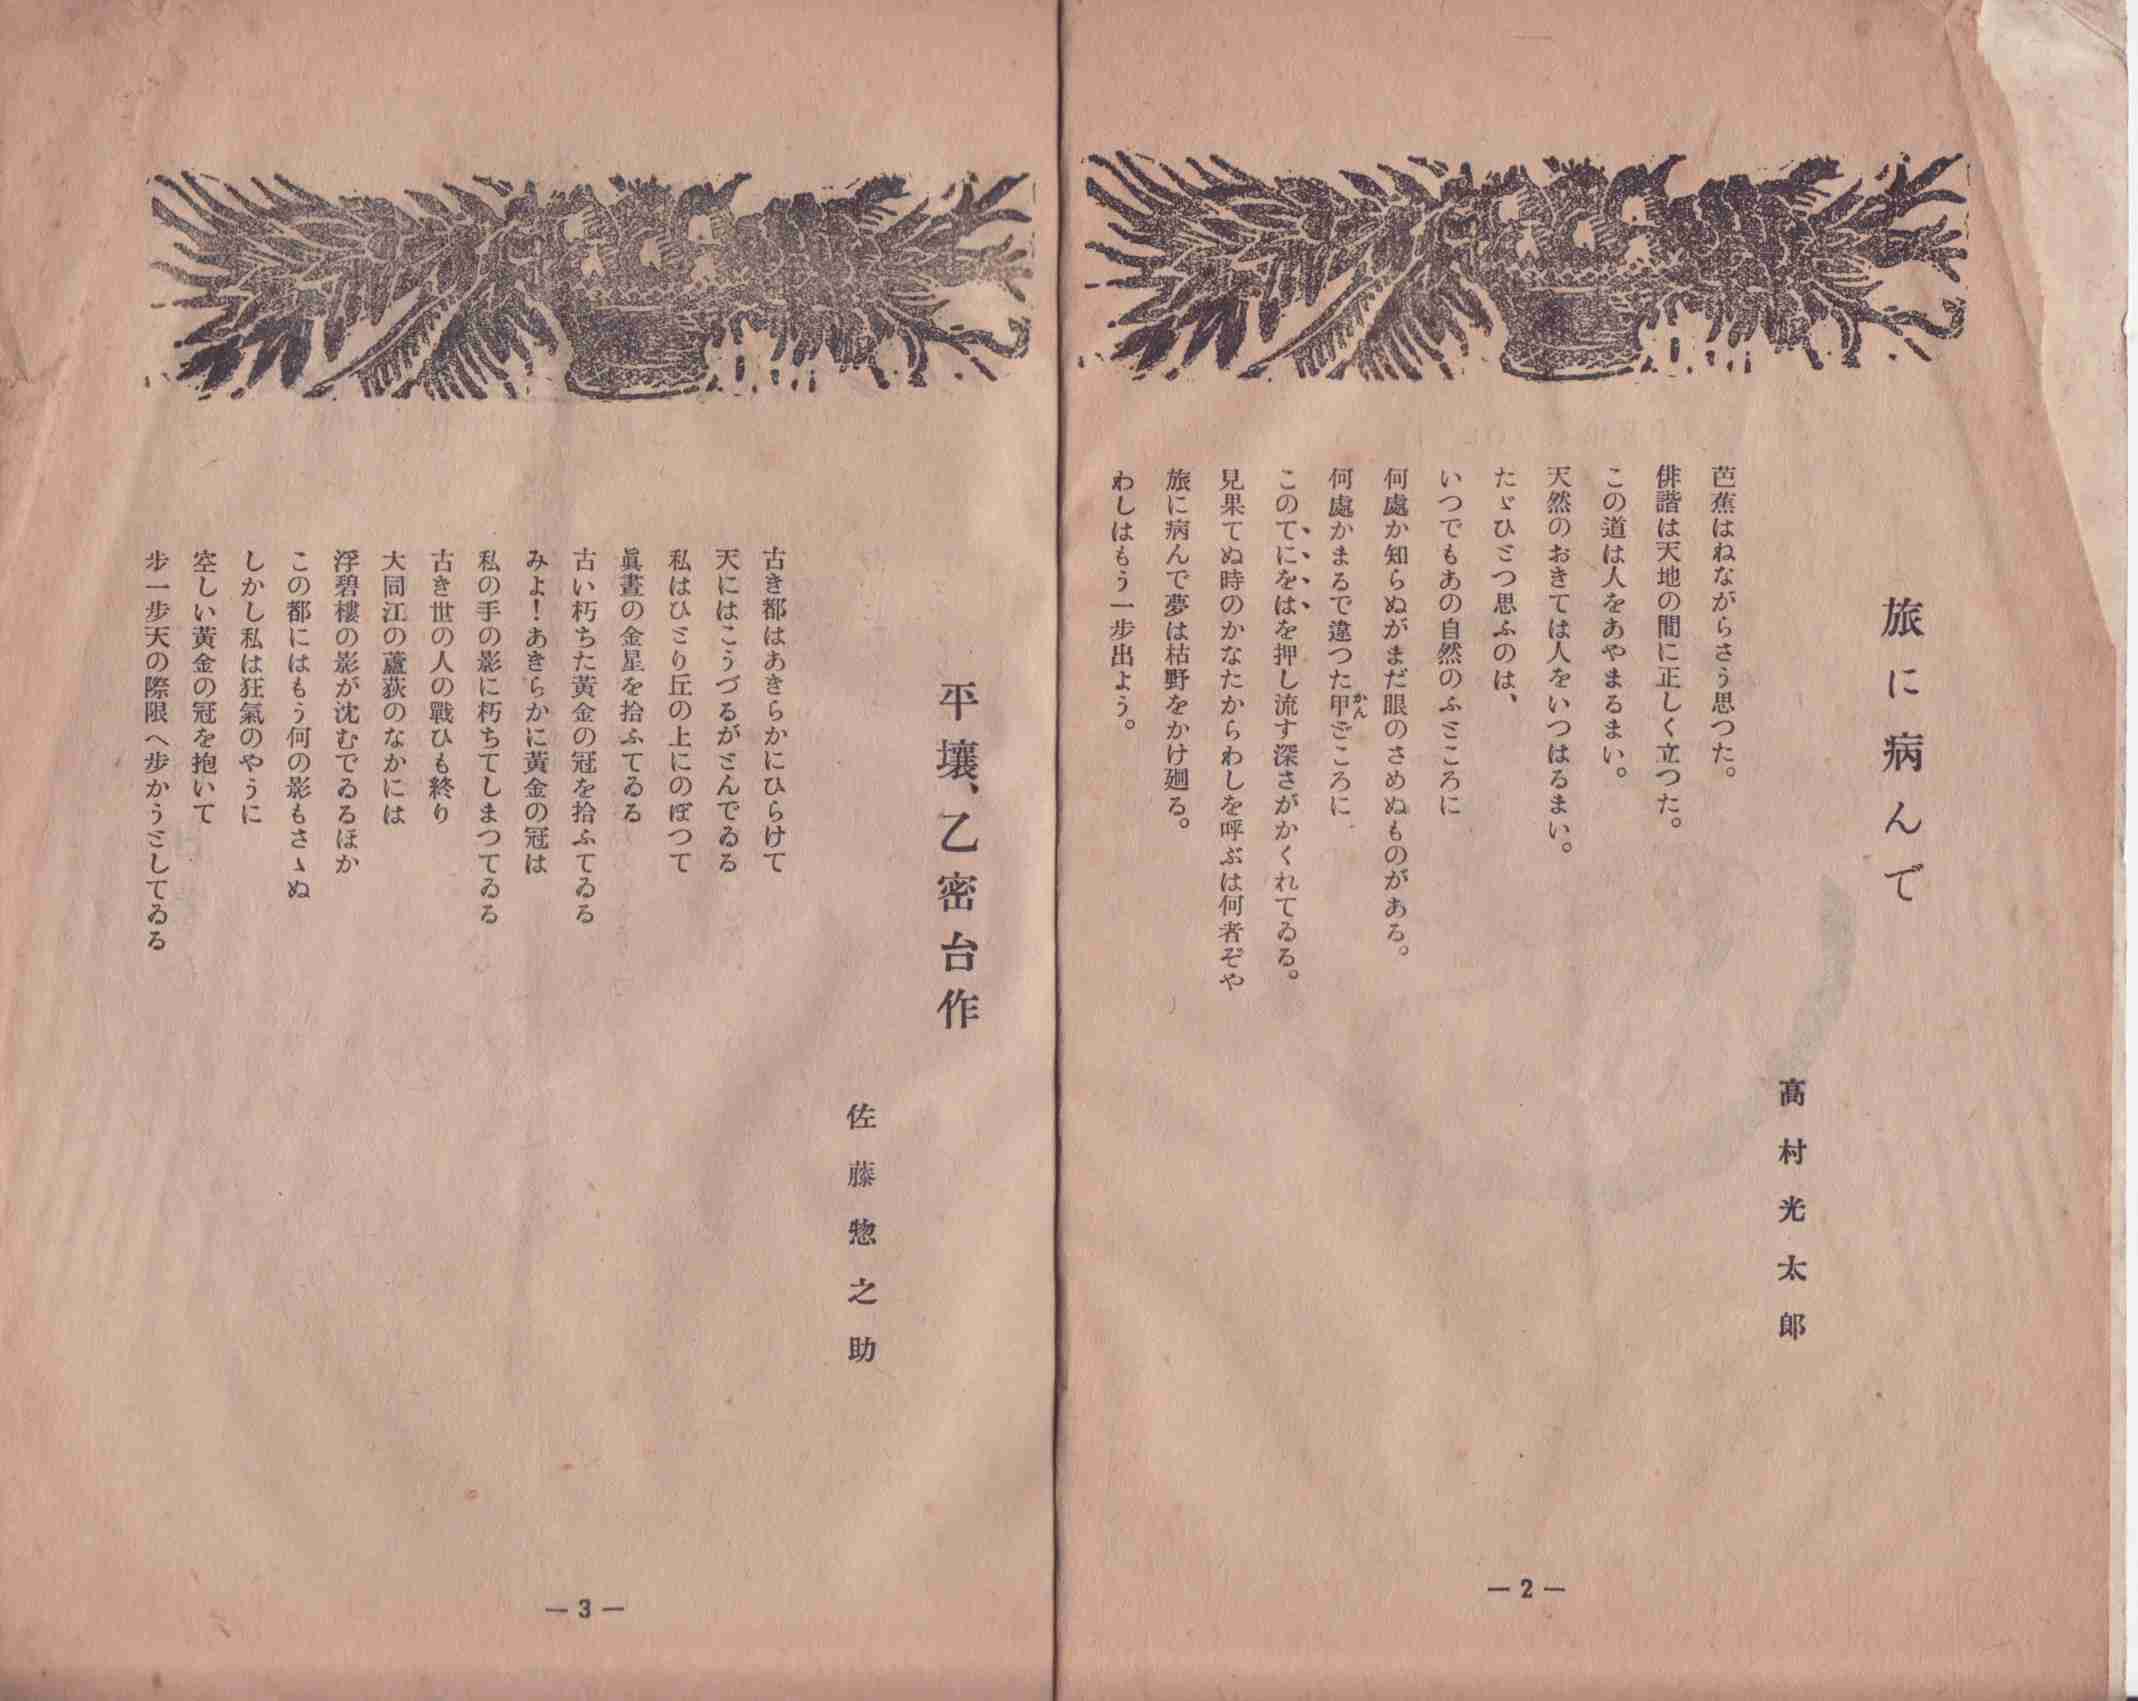 旅に病んで
高村光太郎
芭蕉はねながらさう思つた。
俳諧は天地の間に正しく立つた。
この道は人をあやまるまい。
天然のおきては人をいつはるまい。
たゞひとつ思ふのは、
いつでもあの自然のふところに
何處か知らぬがまだ眼のさめぬものがある。
何處かまるで違つた甲どころに
かん
このてにをはを押し流す深さがかくれてゐる。
見果てぬ時のかなたからわしを呼ぶは何者ぞや
旅に病んで夢は枯野をかけ廻る。
わしはもう一步出よう。
— 2 —
平壤、乙密台作
佐藤惣之助
古き都はあきらかにひらけて
天にはこうづるがとんでゐる
私はひとり丘の上にのぼつて
眞晝の金星を拾ふてゐる
古い朽ちた黃金の冠を拾ふてゐる
みよ！あきらかに黃金の冠は
私の手の影に朽ちてしまつてゐる
古き世の人の戰ひも終り
大同江の蘆荻のなかには
浮碧樓の影が沈むでゐるほか
この都にはもう何の影もさゝぬ
しかし私は狂氣のやうに
空しい黃金の冠を抱いて
步一步天の際限へ步かうとしてゐる
— 3 —